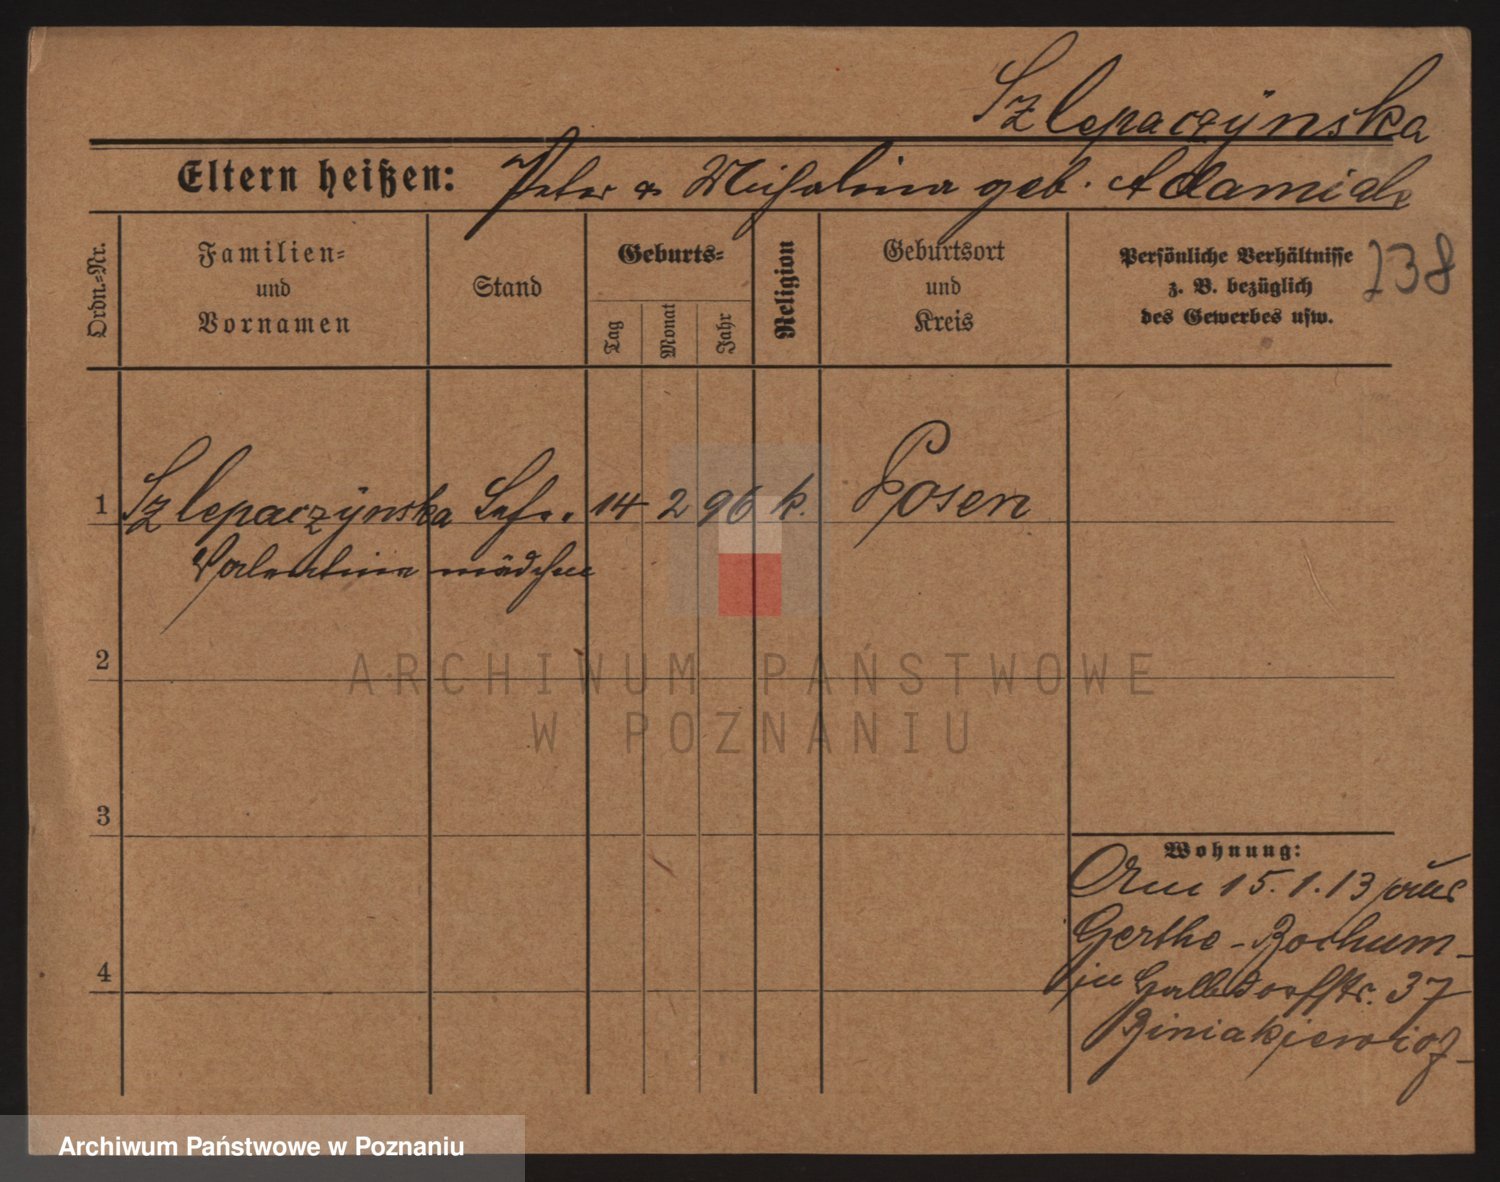 Szlepaczÿnska
Eltern heißen: Peter u Michalina geb. Adamiak
Ordn.-Nr.
Familien-
und
Vornamen
Stand
Geburts-
Tag
Monat
Jahr
Religion
Geburtsort
und
Kreis
Persönliche Verhältnisse
z. B. bezüglich
des Gewerbes usw.
738
1 Szlepaczÿnska 14 2 96 k. Posen
Valentina mädchen
2
3
4
Wohnung:
Am 15.1.13 aus
Gerthe-Bochum-
in 37
Biniakiewicz
ARCHIWUM PAŃSTWOWE
W POZNANIU
Archiwum Państwowe w Poznaniu